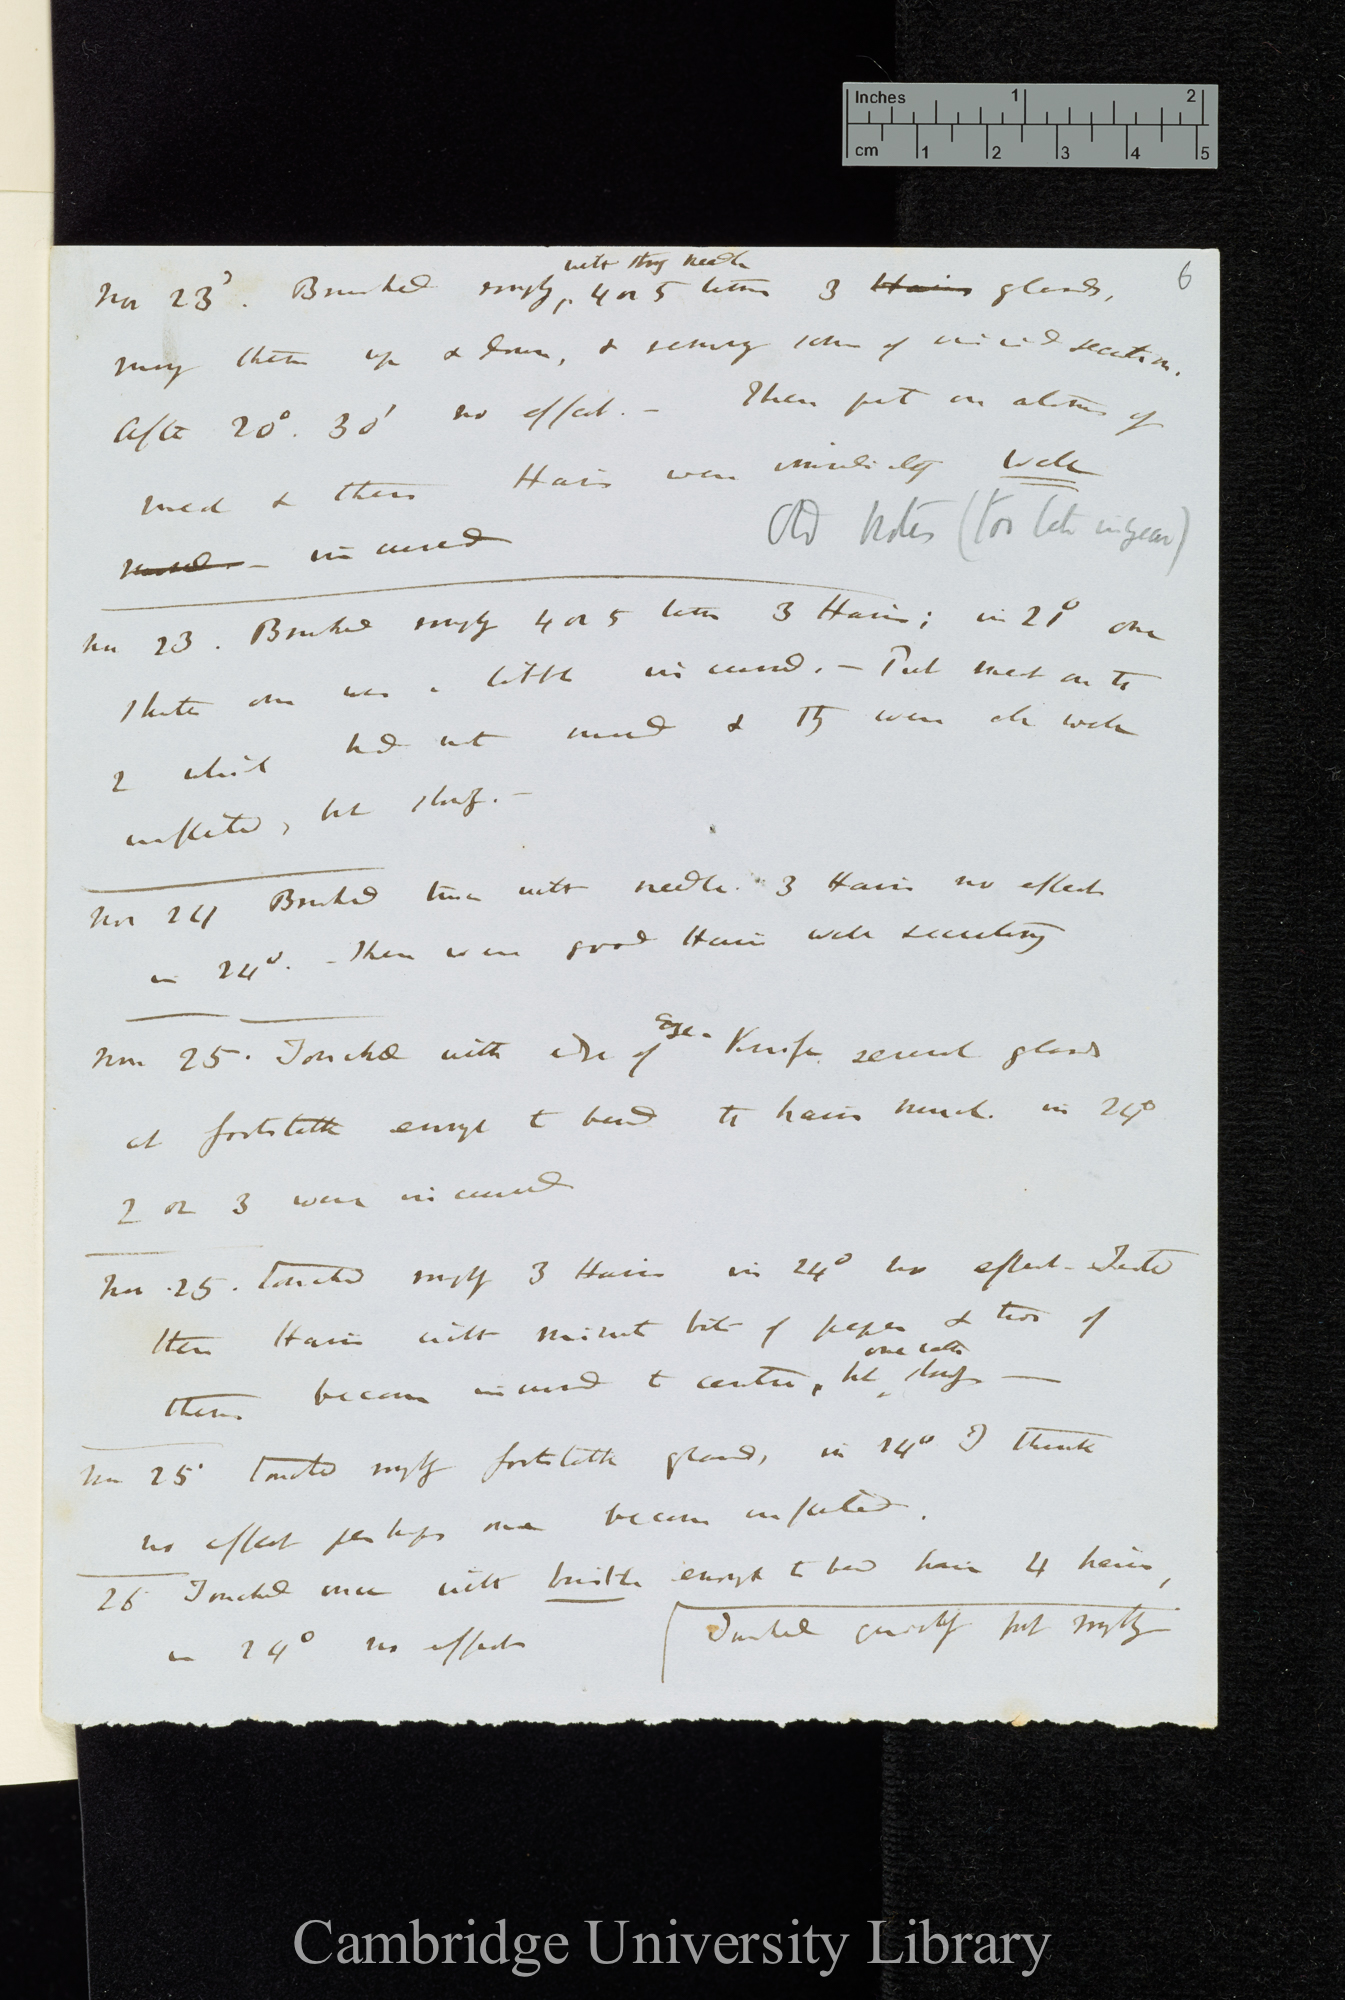 Inches 1 2
cm 1 2 3 4 5
6
with strong needle
Nov 23'. Brushed roughly, 4 or 5 times 3 Hairs glands,
moving them up & down, & removing some of viscid secretion.
After 20° 30' no effect. — Then put on atoms of
meat & these Hairs were immediately well
moved — incurved
Old Notes (too late in year)
Nov 23. Brushed roughly 4 or 5 times 3 Hairs; in 21° one
short one was a little incurved. — Put meat on the
2 which had not moved & they were all well
inflected, but slowly. —
Nov 24 Brushed twice with needle 3 Hairs no effect
in 24°. — These were good Hairs well secreting
Nov 25. Touched with edge of Knife several glands
at foot-stalk enough to bend the hairs much. in 24°
2 or 3 were incurved
Nov 25. touched roughly 3 Hairs in 24° no effect — Tested
these Hairs with minute bits of paper & two of
one rather
them became incurved to centre, but slowly —
Nov 25 touched roughly footstalk glands, in 24° I think
no effect perhaps one became inflected.
26 Touched once with bristle enough to bend hair 4 hairs,
in 24° no effect
Touched quickly but roughly
Cambridge University Library